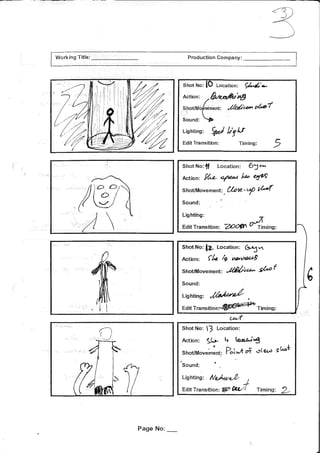 3
Working Title:
Production Company:
Shot No: 10 Location: Studio
Action: Breathing
Shot/Movement: Medium shot
Sound:
Lighting: Spot light
Edit Transition: Timing: 5
Shot No: 11 Location: Gym
Action: She opens her eyes
Shot/Movement: Close-up shot
Sound:
Lighting:
Edit Transition: Zoom Timing:
Shot No: 12 Location: Gym
Action: She is nervous
Shot/Movement: Medium shot
Sound:
Lighting: Natural
Edit Transition: Timing:
6
Cut
Shot No: 13 Location:
Action: She is
Shot/Movement: Point of view shot
Sound:
Lighting: Natural
Edit Transition: Cut Timing: 2
Page No: